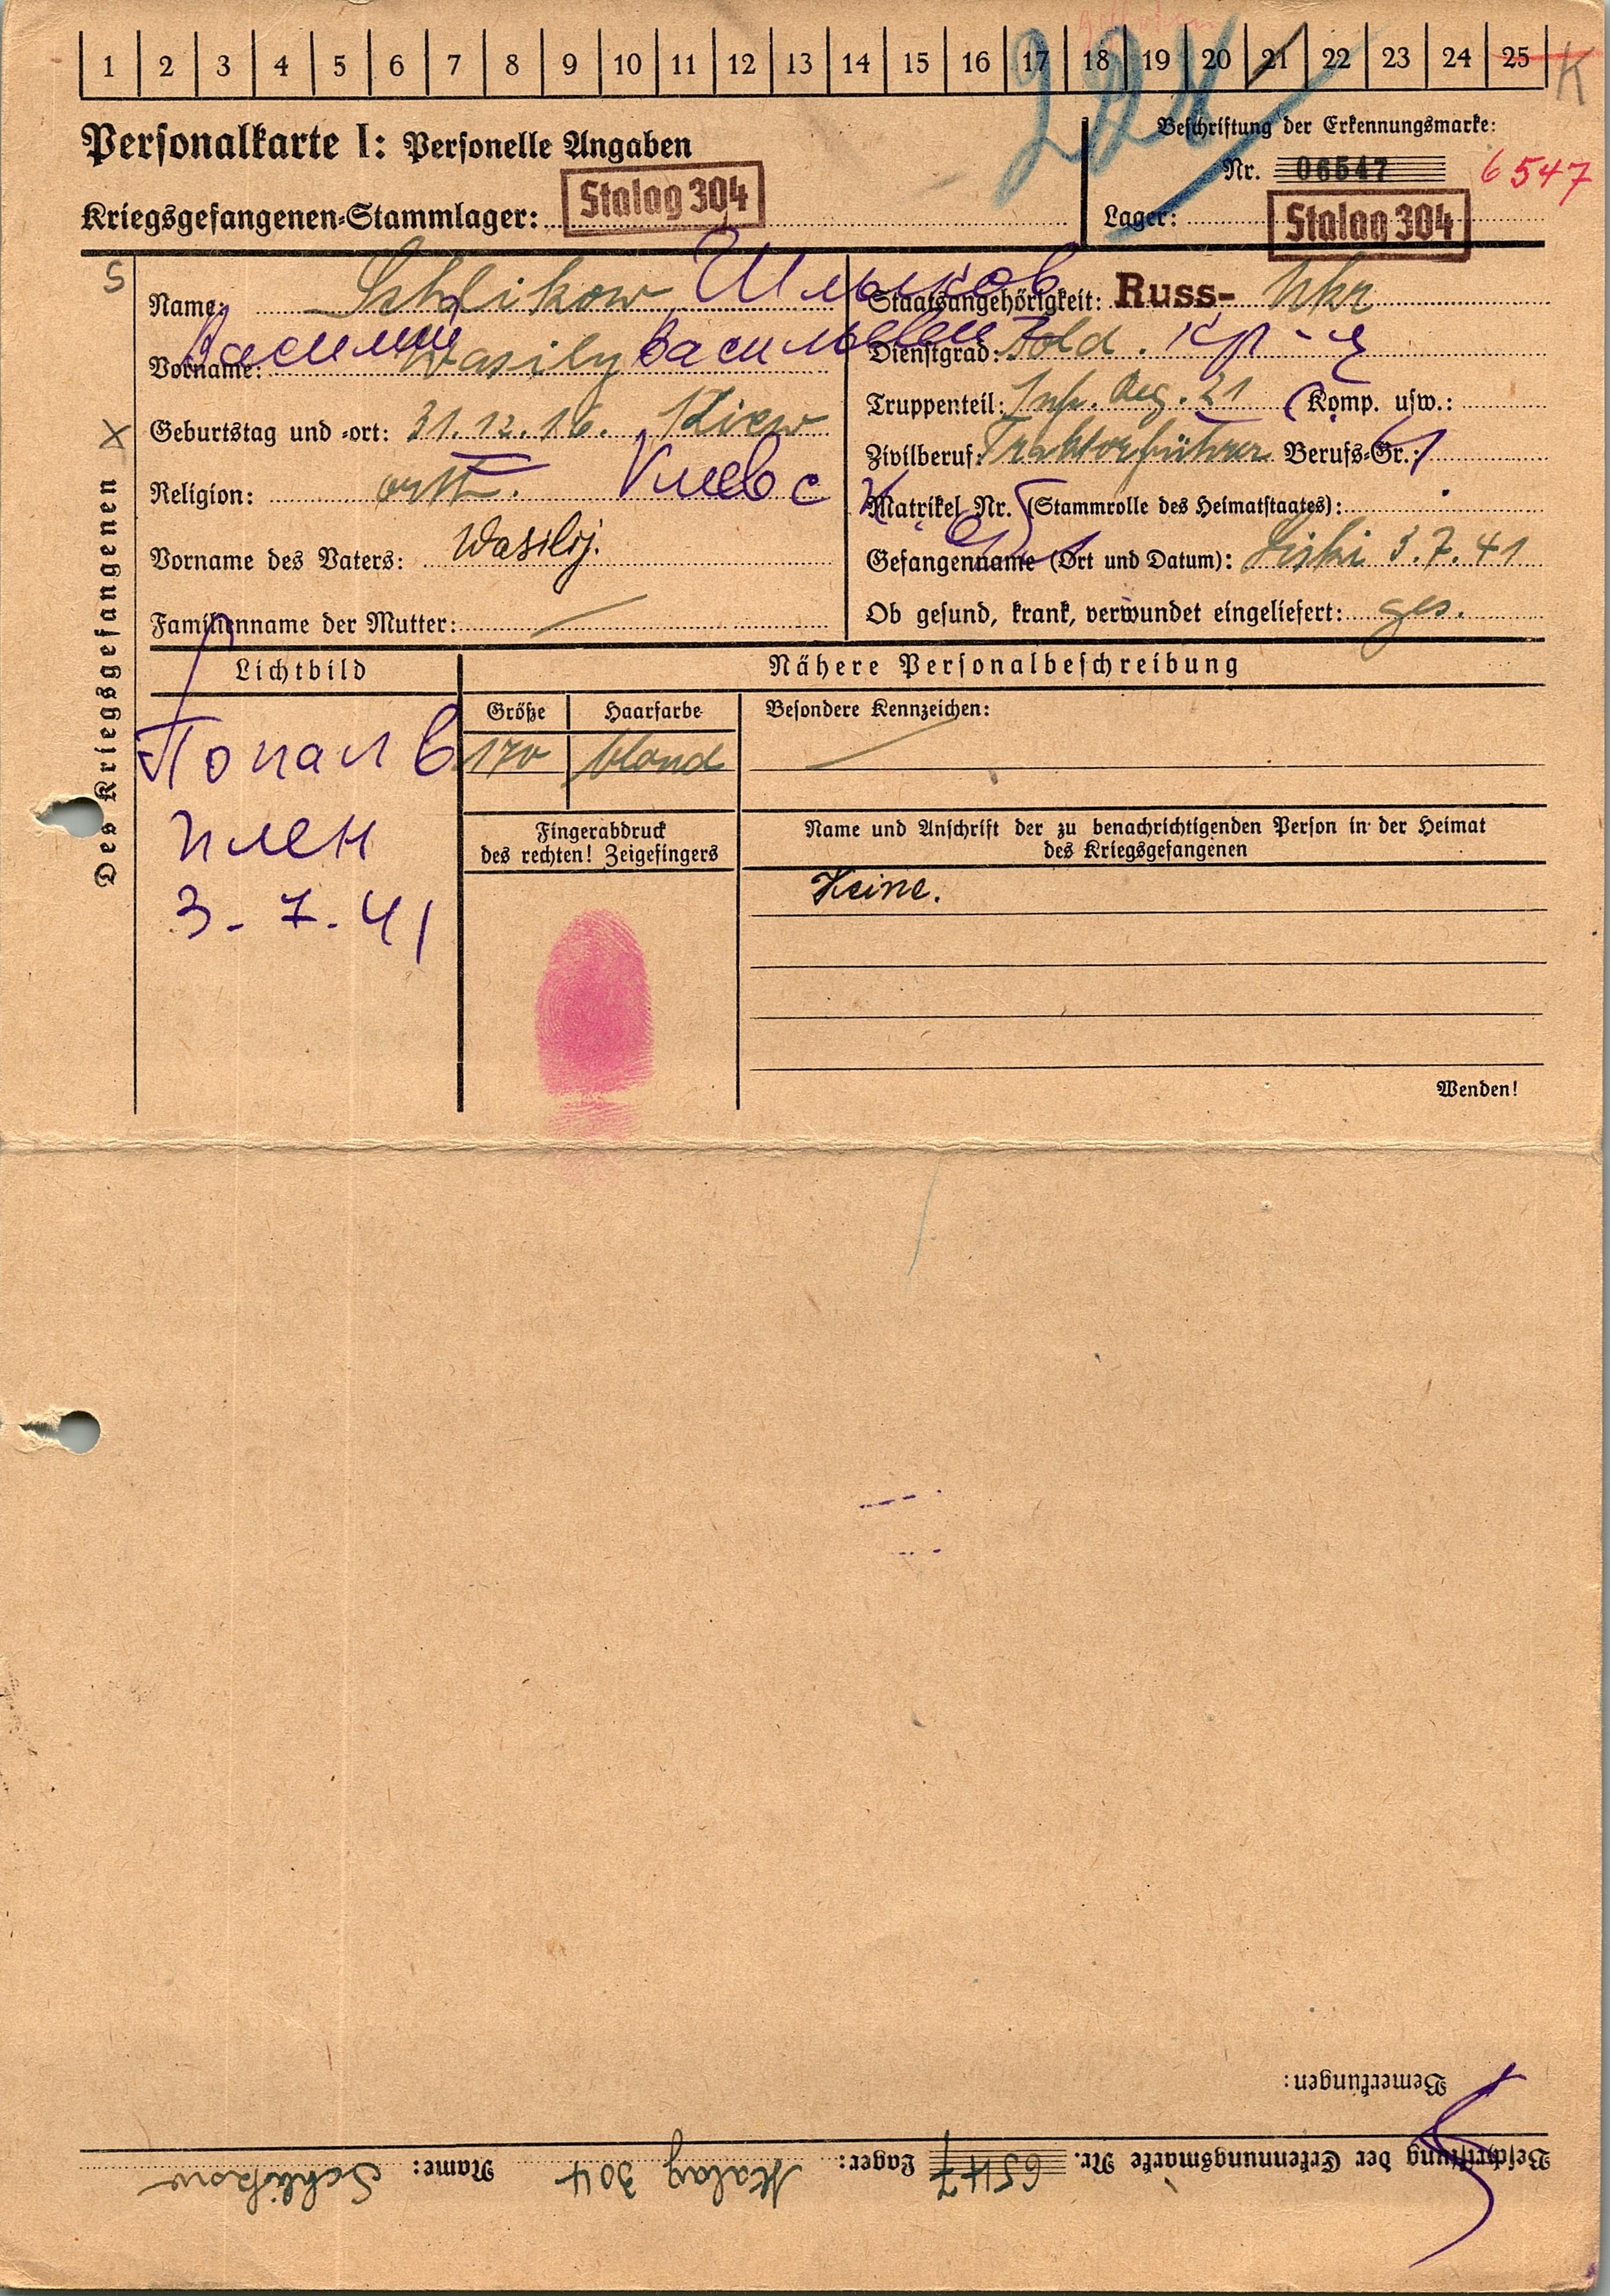 1 2 3 4 5 6 7 8 9 10 11 12 13 14 15 16 17 18 19 20 21 22 23 24 25 K
Personalkarte I: Personelle Angaben
Beschriftung der Erkennungsmarke:
Nr. 06547 6547
Kriegsgefangenen-Stammlager: Stalag 304
Lager: Stalag 304
Des Kriegsgefangenen
S
X
Name: Schlikow Шлыков
Vorname: Wasily Василий Васильевич
Geburtstag und -ort: 31.12.16. Kiew
Religion: orth. Киевс
Vorname des Vaters: Wasilij.
Familienname der Mutter:
Staatsangehörigkeit: Russ- Ukr
Dienstgrad: Sold. кр-ц
Truppenteil: Inf. Reg. 21 Komp. usw.:
Zivilberuf: Traktorführer Berufs-Gr.:
Matrikel Nr. (Stammrolle des Heimatstaates):
Gefangenname (Ort und Datum): 3.7.41
Ob gesund, krank, verwundet eingeliefert: ges.
Lichtbild
Попал в
плен
3-7-41
Nähere Personalbeschreibung
Größe Haarfarbe Besondere Kennzeichen:
170 blond
Fingerabdruck
des rechten! Zeigefingers
Name und Anschrift der zu benachrichtigenden Person in der Heimat
des Kriegsgefangenen
Keine.
Wenden!
Bemerkungen:
Beschriftung der Erkennungsmarke Nr. 6547 Lager: Stalag 304 Name: Schlikow